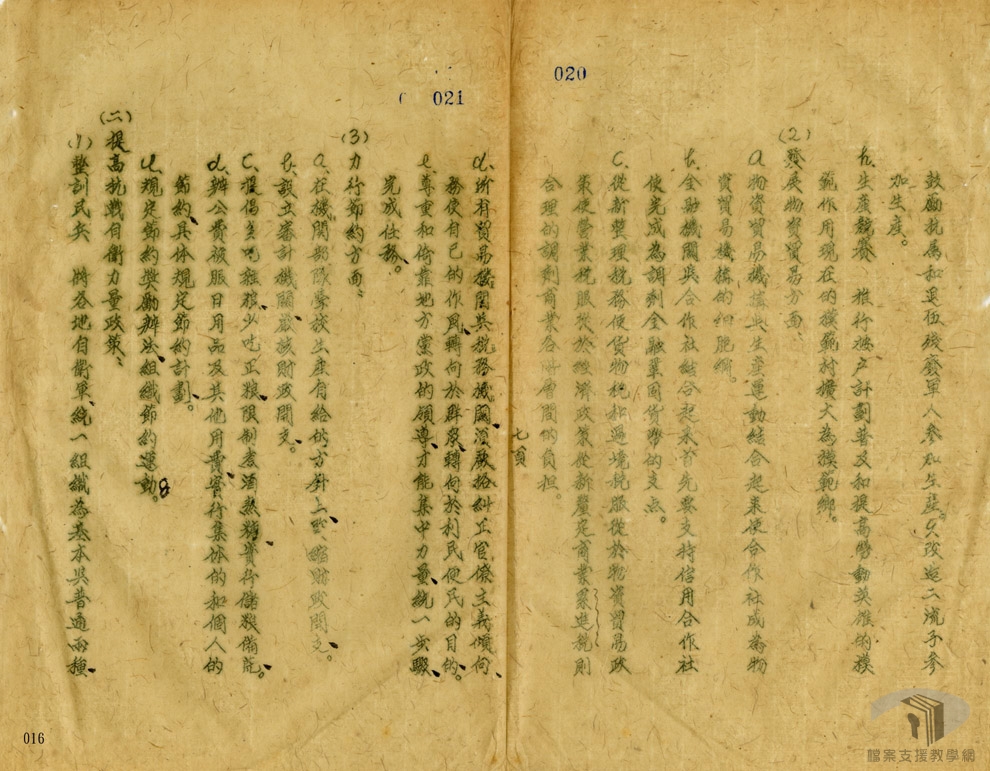 020
鼓勵抗屬和退伍殘廢軍人參加生產。改造二流子參
加生產。
h、生產競賽 推行按户計劃普及和提高勞動英雄的模
範作用現在的模範村擴大為模範鄉。
(2)發展物資貿易方面、
a、物資貿易機構與生產運動結合起來使合作社成為物
資貿易機構的細胞網。
b、金融機關與合作社結合起來首先要支持信用合作社
使完成為調劑金融鞏固貨幣的支点。
C、從新整理稅務使貨物稅和過境稅服從於物資貿易政
策使營業稅服從於經濟政策從新釐定商業累進稅則
合理的調劑商業各階層間的負担。
七頁
021
d、所有貿易機関與稅務機関須嚴格糾正官僚主義傾向、
務使自已的作風、轉向於群眾、轉向於利民便民的目的。
e、尊重和倚靠地方黨政的領導、才能集中力量、統一步驟、
完成任務。
(3)力行節約方面、
a、在機関部隊學校生產自給的方針上、緊縮財政開支。
b、設立審計機関、嚴核財政開支。
C、提倡多吃雜糧、少吃正糧、限制煮酒熬糖、實行儲糧備荒。
d、辦公費被服日用品及其他用費、實行集体的和個人的
節約、具体規定節約計劃。
e、規定節約獎勵辦法、組織節約運動。
(二)提高抗戰自衛力量政策、
(1)整訓民兵 將各地自衛軍、統一組織為基本與普通兩種、
016
檔案支援教學網